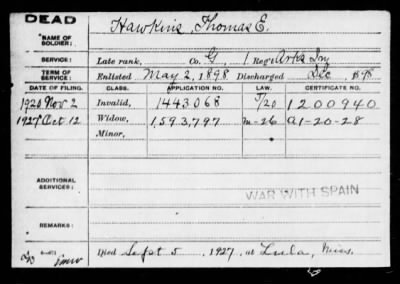 DEAD
NAME OF SOLDIER: Hawkins, Thomas E.
SERVICE: Late rank, Co. G, 1 Reg't Ark's Inf
TERM OF SERVICE: Enlisted May 2, 1898 Discharged Dec 98
DATE OF FILING. CLASS. APPLICATION NO. LAW. CERTIFICATE NO.
1920 Nov 2 Invalid, 1443068 1200940
1927 Oct 12 Widow, 1593797 m-26 A1-20-28
Minor,
ADDITIONAL SERVICES:
WAR WITH SPAIN
REMARKS:
Died Sept 5, 1927, at Lula, Miss.